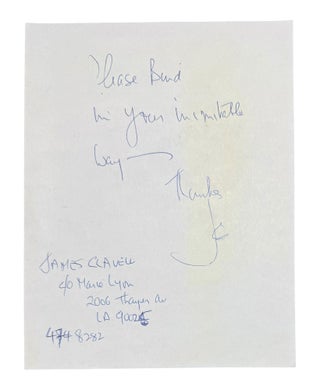 Please Bind
in your inimitable
way —
Thanks
JC
JAMES CLAVELL
c/o Marie Lyon
2006 Thayer Av
LA 90025
474 8282